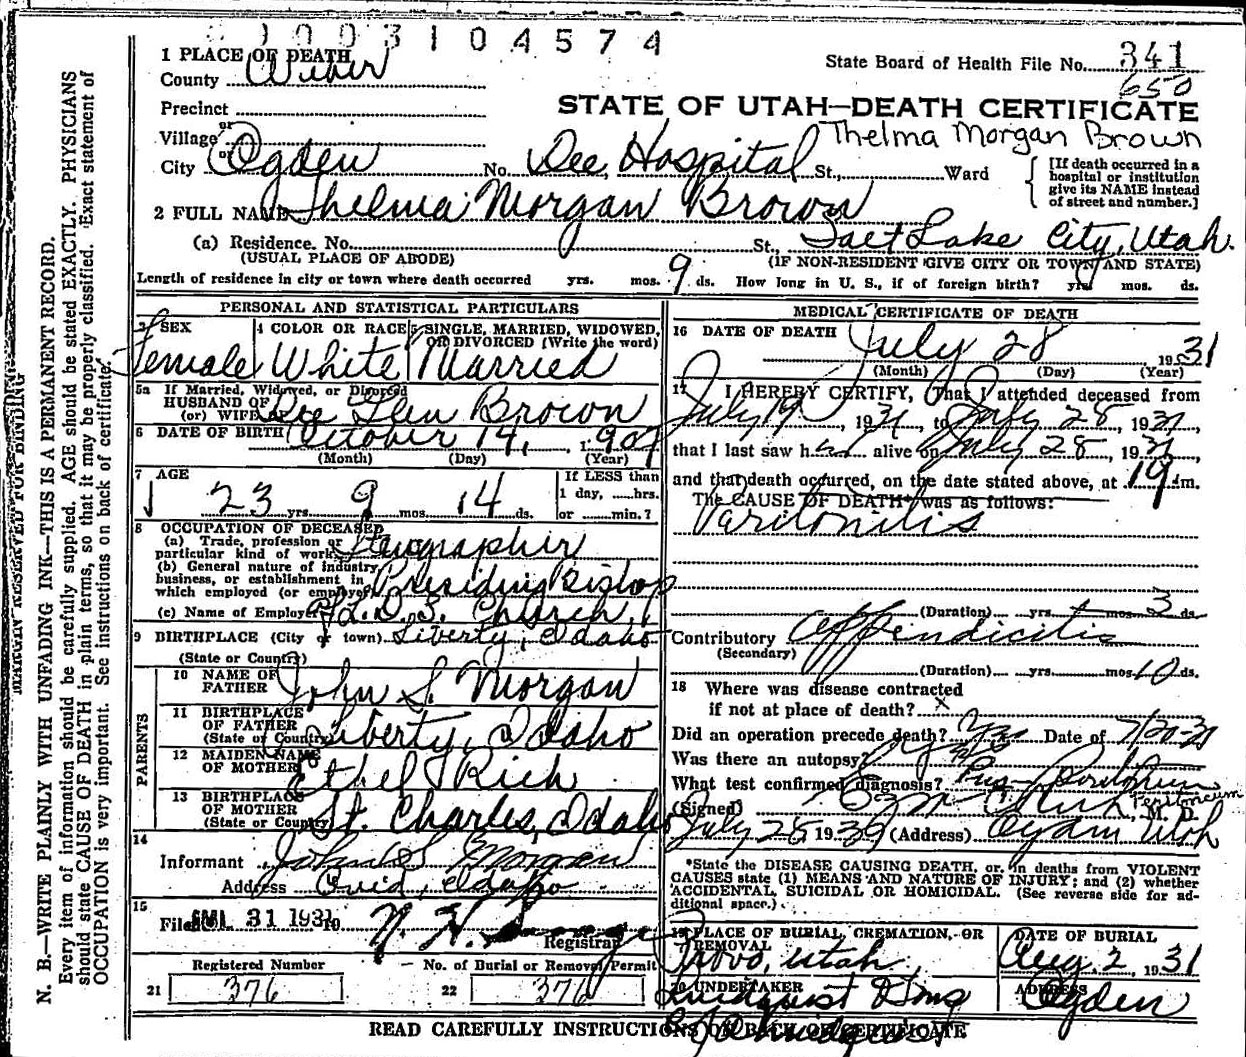 1003104574
1 PLACE OF DEATH
County Weber
State Board of Health File No. 341
650
Precinct
STATE OF UTAH—DEATH CERTIFICATE
Thelma Morgan Brown
Village
or
City Ogden No. Dee Hospital St., Ward
[If death occurred in a
hospital or institution
give its NAME instead
of street and number.]
2 FULL NAME Thelma Morgan Brown
(a) Residence. No. St., Salt Lake City, Utah.
(USUAL PLACE OF ABODE) (IF NON-RESIDENT GIVE CITY OR TOWN AND STATE)
Length of residence in city or town where death occurred yrs. mos. 9 ds. How long in U. S., if of foreign birth? yrs. mos. ds.
PERSONAL AND STATISTICAL PARTICULARS
3 SEX 4 COLOR OR RACE 5 SINGLE, MARRIED, WIDOWED,
OR DIVORCED (Write the word)
Female White Married
5a If Married, Widowed, or Divorced
HUSBAND OF
(or) WIFE OF Glen Brown
6 DATE OF BIRTH October 14, 1907
(Month) (Day) (Year)
7 AGE If LESS than
1 day, hrs.
23 yrs. 9 mos. 14 ds. or min.?
8 OCCUPATION OF DECEASED
(a) Trade, profession or
particular kind of work Stenographer
(b) General nature of industry,
business, or establishment in
which employed (or employer) Presiding Bishop
(c) Name of Employer L.D.S. Church
9 BIRTHPLACE (City or town) Liberty, Idaho
(State or Country)
PARENTS
10 NAME OF
FATHER John S. Morgan
11 BIRTHPLACE
OF FATHER
(State or Country) Liberty, Idaho
12 MAIDEN NAME
OF MOTHER Ethel Rich
13 BIRTHPLACE
OF MOTHER
(State or Country) St. Charles, Idaho
14
Informant John S. Morgan
Address Ovid, Idaho
15
Filed JUL 31 1931 19
Registrar
Registered Number No. of Burial or Removal Permit
21 376 22 376
MEDICAL CERTIFICATE OF DEATH
16 DATE OF DEATH July 28 1931
(Month) (Day) (Year)
17 I HEREBY CERTIFY, That I attended deceased from
July 19, 1931, to July 28, 1931,
that I last saw her alive on July 28, 1931,
and that death occurred, on the date stated above, at m.
The CAUSE OF DEATH* was as follows:
Peritonitis
(Duration) yrs. mos. 3 ds.
Contributory Appendicitis
(Secondary)
(Duration) yrs. mos. 10 ds.
18 Where was disease contracted
if not at place of death? x
Did an operation precede death? yes Date of 7/20-31
Was there an autopsy? no
What test confirmed diagnosis? Pus
Peritoneum
(Signed) M. D.
July 28, 19 (Address) Ogden Utah
*State the DISEASE CAUSING DEATH, or, in deaths from VIOLENT
CAUSES state (1) MEANS AND NATURE OF INJURY; and (2) whether
ACCIDENTAL, SUICIDAL OR HOMICIDAL. (See reverse side for ad-
ditional space.)
19 PLACE OF BURIAL, CREMATION, OR
REMOVAL
Provo, Utah
DATE OF BURIAL
Aug 2, 1931
20 UNDERTAKER
Lindquist & Sons
ADDRESS
Ogden
READ CAREFULLY INSTRUCTIONS ON BACK OF CERTIFICATE
MARGIN RESERVED FOR BINDING
N. B.—WRITE PLAINLY WITH UNFADING INK—THIS IS A PERMANENT RECORD.
Every item of information should be carefully supplied. AGE should be stated EXACTLY. PHYSICIANS
should state CAUSE OF DEATH in plain terms, so that it may be properly classified. Exact statement of
OCCUPATION is very important. See instructions on back of certificate.